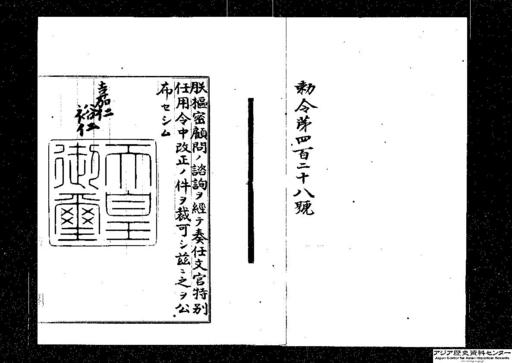 勅令第四百二十八號
朕樞密顧問ノ諮詢ヲ經テ奏任文官特別
任用令中改正ノ件ヲ裁可シ茲ニ之ヲ公
布セシム
嘉仁
裕仁
天皇
御璽
アジア歴史資料センター
Japan Center for Asian Historical Records